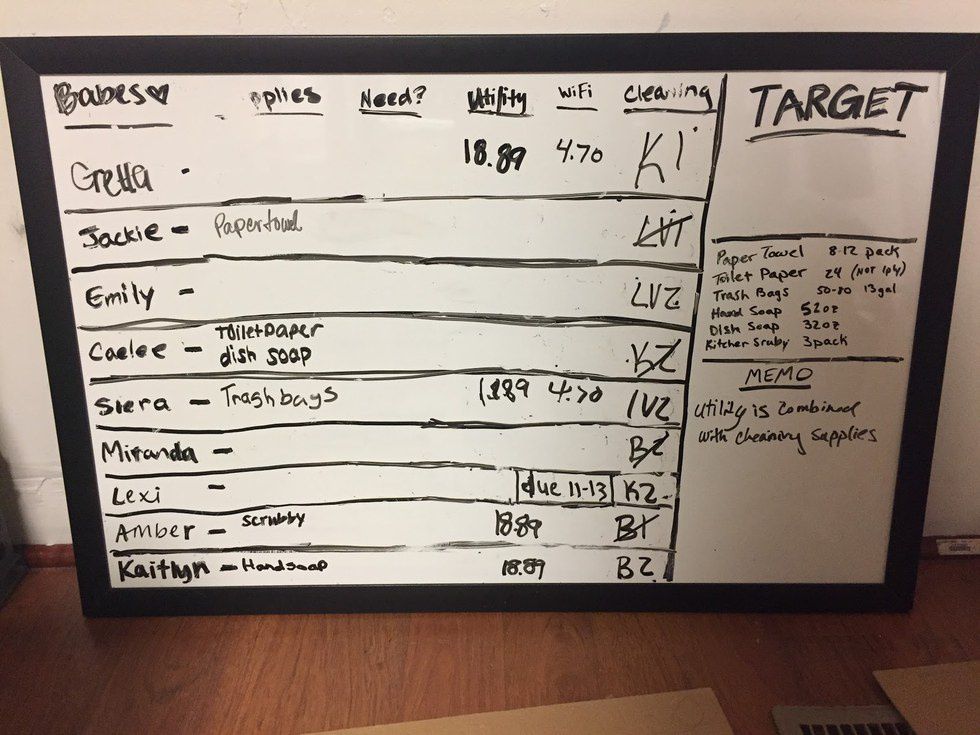 Babes♥ pplies Need? Utility WiFi Cleaning
Gretta - 18.89 4.70 K1
Jackie - Papertowel LV1
Emily - LV2
Caelee - Toiletpaper
dish soap K2
Siera - Trashbags 18.89 4.70 LV2
Miranda - B2
Lexi - due 11-13 K2
Amber - Scrubby 18.89 B1
Kaitlyn - Handsoap 18.89 B2
TARGET
Paper Towel 8-12 pack
Toilet Paper 24 (Not 1ply)
Trash Bags 50-80 13gal
Hand Soap 52oz
Dish Soap 32oz
Kitchen Sruby 3pack
MEMO
Utility is combined
with cleaning supplies